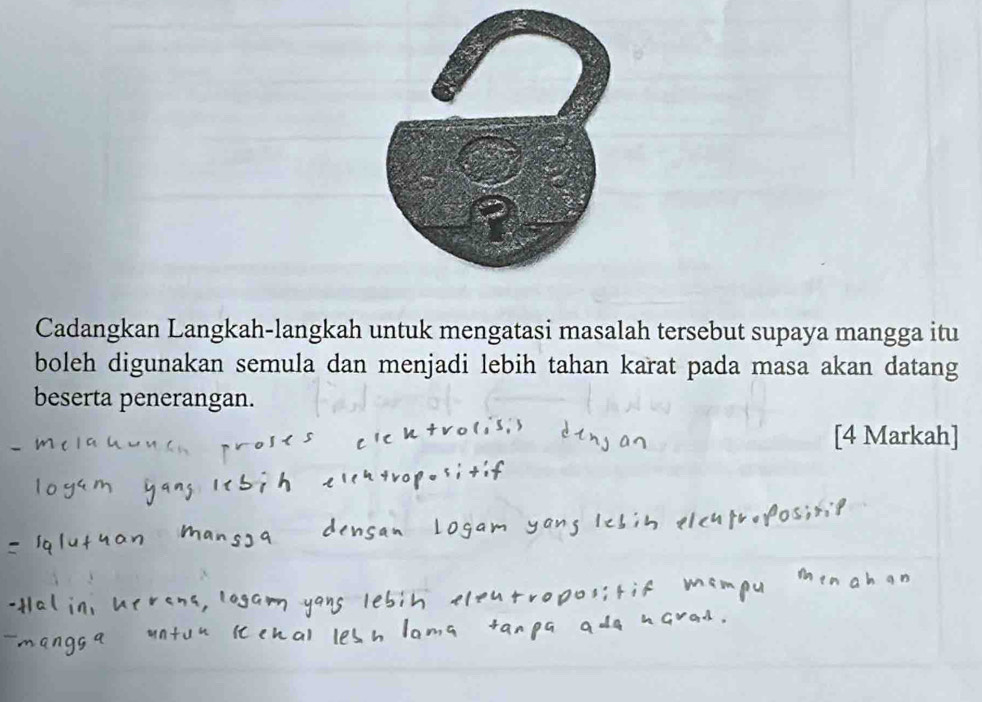 Cadangkan Langkah-langkah untuk mengatasi masalah tersebut supaya mangga itu
boleh digunakan semula dan menjadi lebih tahan karat pada masa akan datang
beserta penerangan.
[4 Markah]
- melakukan proses elektrolisis dengan
logam yang lebih elektropositif
- salutkan mangga dengan logam yang lebih elektropositif
- Hal ini kerana, logam yang lebih elektropositif mampu menahan
- mangga untuk kekal lebih lama tanpa ada karat.